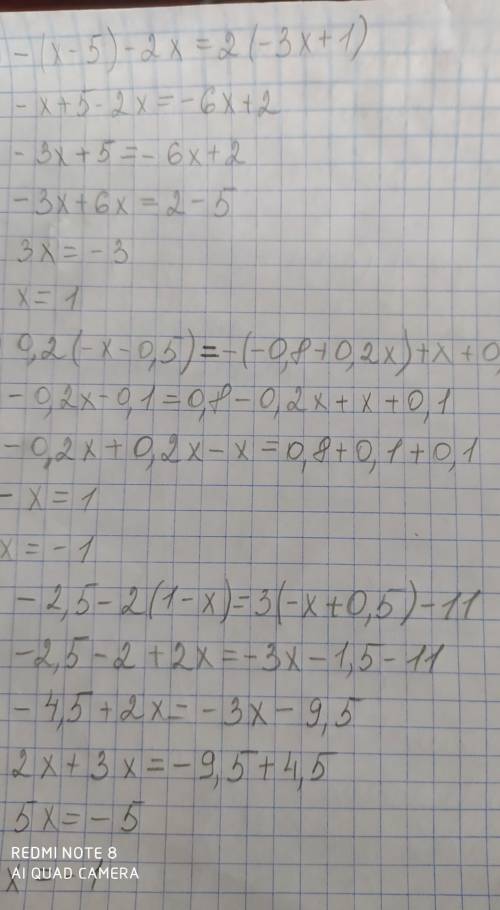 -(x-5)-2x=2(-3x+1)
-x+5-2x=-6x+2
-3x+5=-6x+2
-3x+6x=2-5
3x=-3
x=1
0,2(-x-0,5)=-(-0,8+0,2x)+x+0,
-0,2x-0,1=0,8-0,2x+x+0,1
-0,2x+0,2x-x=0,8+0,1+0,1
-x=1
x=-1
-2,5-2(1-x)=3(-x+0,5)-11
-2,5-2+2x=-3x-1,5-11
-4,5+2x=-3x-9,5
2x+3x=-9,5+4,5
5x=-5
x=-1
REDMI NOTE 8
AI QUAD CAMERA